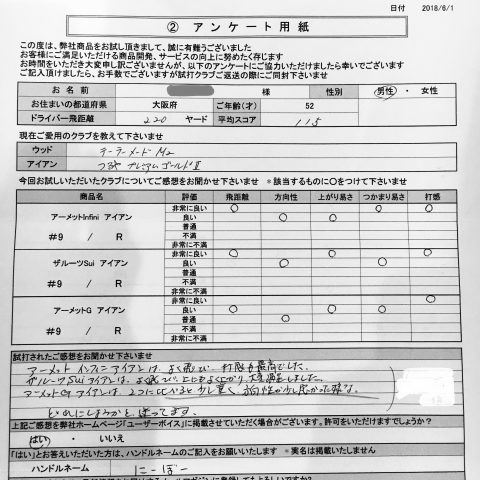 日付 2018/6/1
② アンケート用紙
この度は、弊社商品をお試し頂きまして、誠に有難うございました
お客様にご満足いただける商品開発、サービスの向上に努めたく存じます
お時間をいただき大変申し訳ございませんが、以下のアンケートにご協力いただけましたら幸いでございます
ご記入頂けましたら、お手数でございますが試打クラブご返送の際にご同封下さいませ
お 名 前 様 性別 男性 ・ 女性
お住まいの都道府県 大阪府 ご年齢(才) 52
ドライバー飛距離 220 ヤード 平均スコア 115
現在ご愛用のクラブを教えて下さいませ
ウッド テーラーメード M2
アイアン つるや プレミアムゴールドⅡ
今回お試しいただいたクラブについてご感想をお聞かせ下さいませ *該当するものに○をつけて下さいませ
商品名 評価 飛距離 方向性 上がり易さ つかまり易さ 打感
アーメットInfini アイアン
#9 / R
非常に良い ○ ○ ○
良い ○ ○
普通
不満
非常に不満
ザルーツSui アイアン
#9 / R
非常に良い ○ ○ ○
良い ○ ○
普通
不満
非常に不満
アーメットG アイアン
#9 / R
非常に良い ○ ○ ○ ○
良い ○
普通
不満
非常に不満
試打されたご感想をお聞かせ下さいませ
アーメット インフィニ アイアンは、よく飛び、打感も最高でした。
ザルーツSuiアイアンは、よく飛び、上にもよく上がり、大変満足しました。
アーメットGアイアンは、2つに比べると少し重く、方向性が少し悪かった様な。
どれにしようかと、迷ってます。
上記ご感想を弊社ホームページ「ユーザーボイス」に掲載させていただく場合がございます。許可をいただけますでしょうか?
はい ・ いいえ
「はい」とお答えいただいた方は、ハンドルネームのご記入をお願いします *実名は掲載いたしません
ハンドルネーム にーぼー